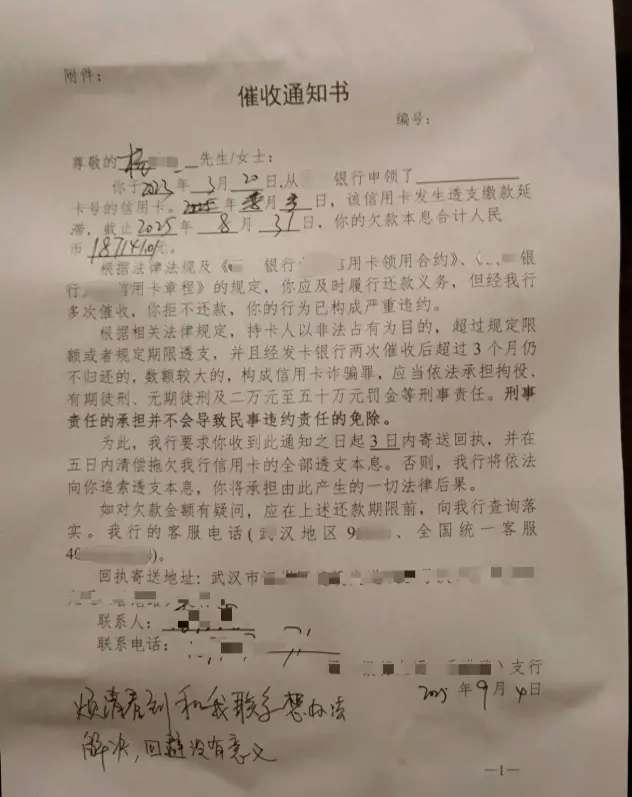 附件：
催收通知书
编号：
尊敬的杨 先生/女士：
你于2023年3月20日,从 银行申领了
卡号的信用卡。2025年 月 日，该信用卡发生透支缴款延
滞，截止2025年8月31日，你的欠款本息合计人民
币187141.01元。
根据法律法规及《 银行 信用卡领用合约》、《 银
行 信用卡章程》的规定，你应及时履行还款义务，但经我行
多次催收，你拒不还款，你的行为已构成严重违约。
根据相关法律规定，持卡人以非法占有为目的，超过规定限
额或者规定期限透支，并且经发卡银行两次催收后超过3个月仍
不归还的，数额较大的，构成信用卡诈骗罪，应当依法承担拘役、
有期徒刑、无期徒刑及二万元至五十万元罚金等刑事责任。刑事
责任的承担并不会导致民事违约责任的免除。
为此，我行要求你收到此通知之日起3日内寄送回执，并在
五日内清偿拖欠我行信用卡的全部透支本息。否则，我行将依法
向你追索透支本息，你将承担由此产生的一切法律后果。
如对欠款金额有疑问，应在上述还款期限前，向我行查询落
实。我行的客服电话(武汉地区9 、全国统一客服
40 )。
回执寄送地址：武汉市
联系人：
联系电话：
支行
2025年9月4日
烦请看到和我联系想办法
解决,回避没有意义
—1—